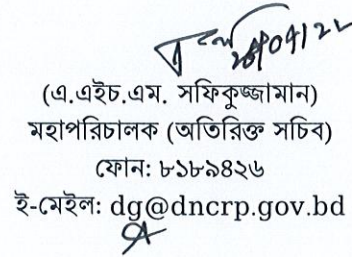 (এ.এইচ.এম. সফিকুজ্জামান)
মহাপরিচালক (অতিরিক্ত সচিব)
ফোন: ৮১৮৯৪২৬
ই-মেইল: dg@dncrp.gov.bd